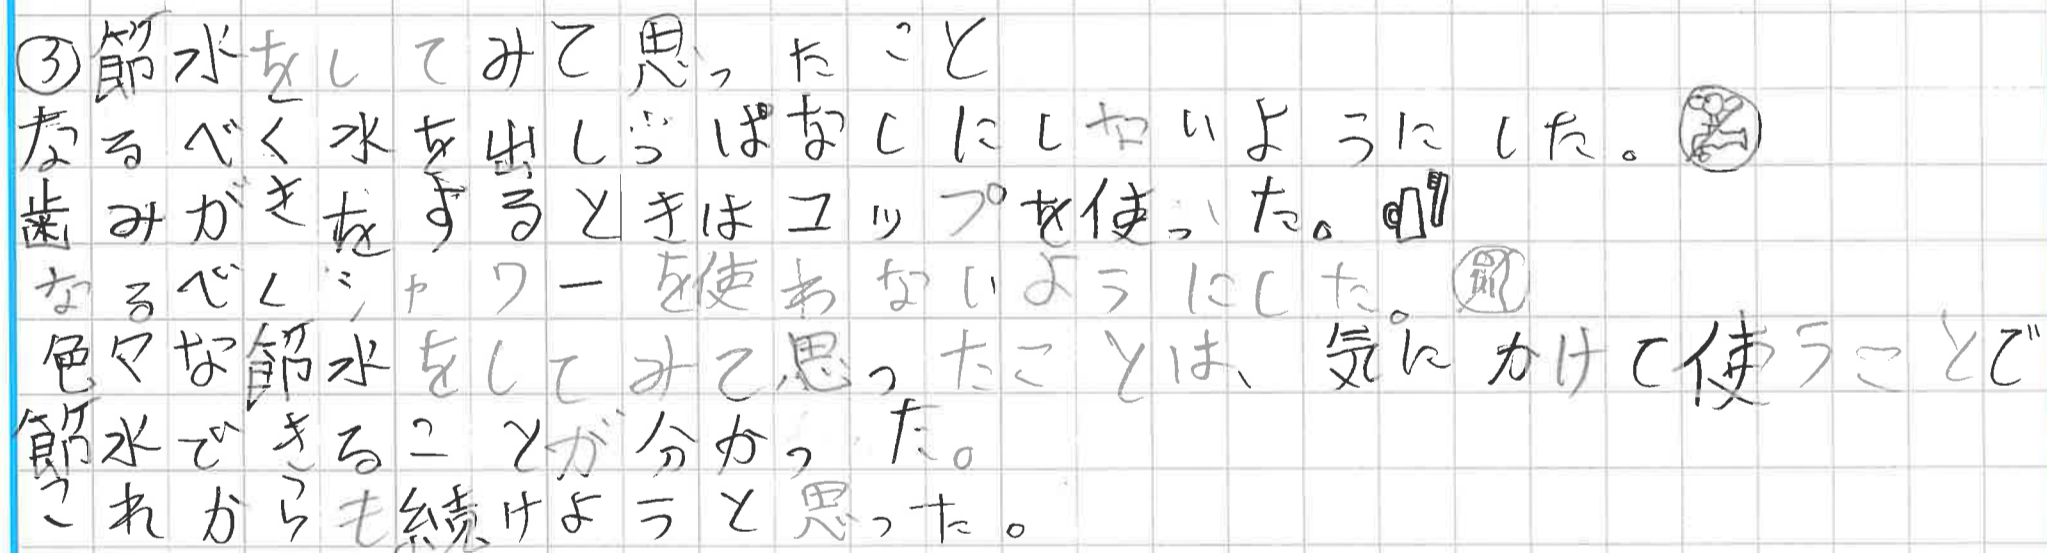 ③節水をしてみて思ったこと
なるべく水を出しっぱなしにしないようにした。
歯みがきをするときはコップを使った。
なるべくシャワーを使わないようにした。
色々な節水をしてみて思ったことは、気にかけて使うことで
節水できることが分かった。
これからも続けようと思った。